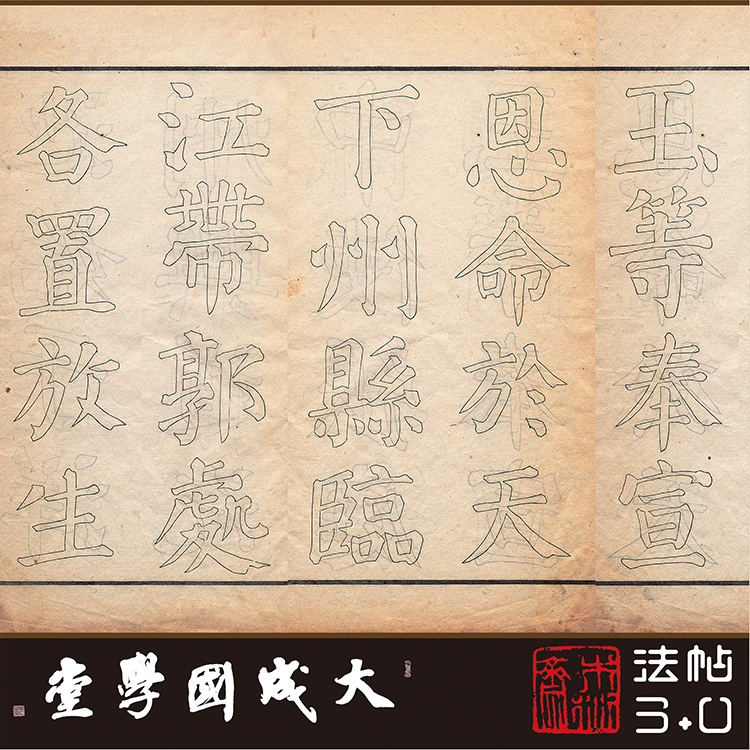 玉等奉宣
恩命於天
下州縣臨
江帶郭處
各置放生
大成國學堂
法帖
3.0